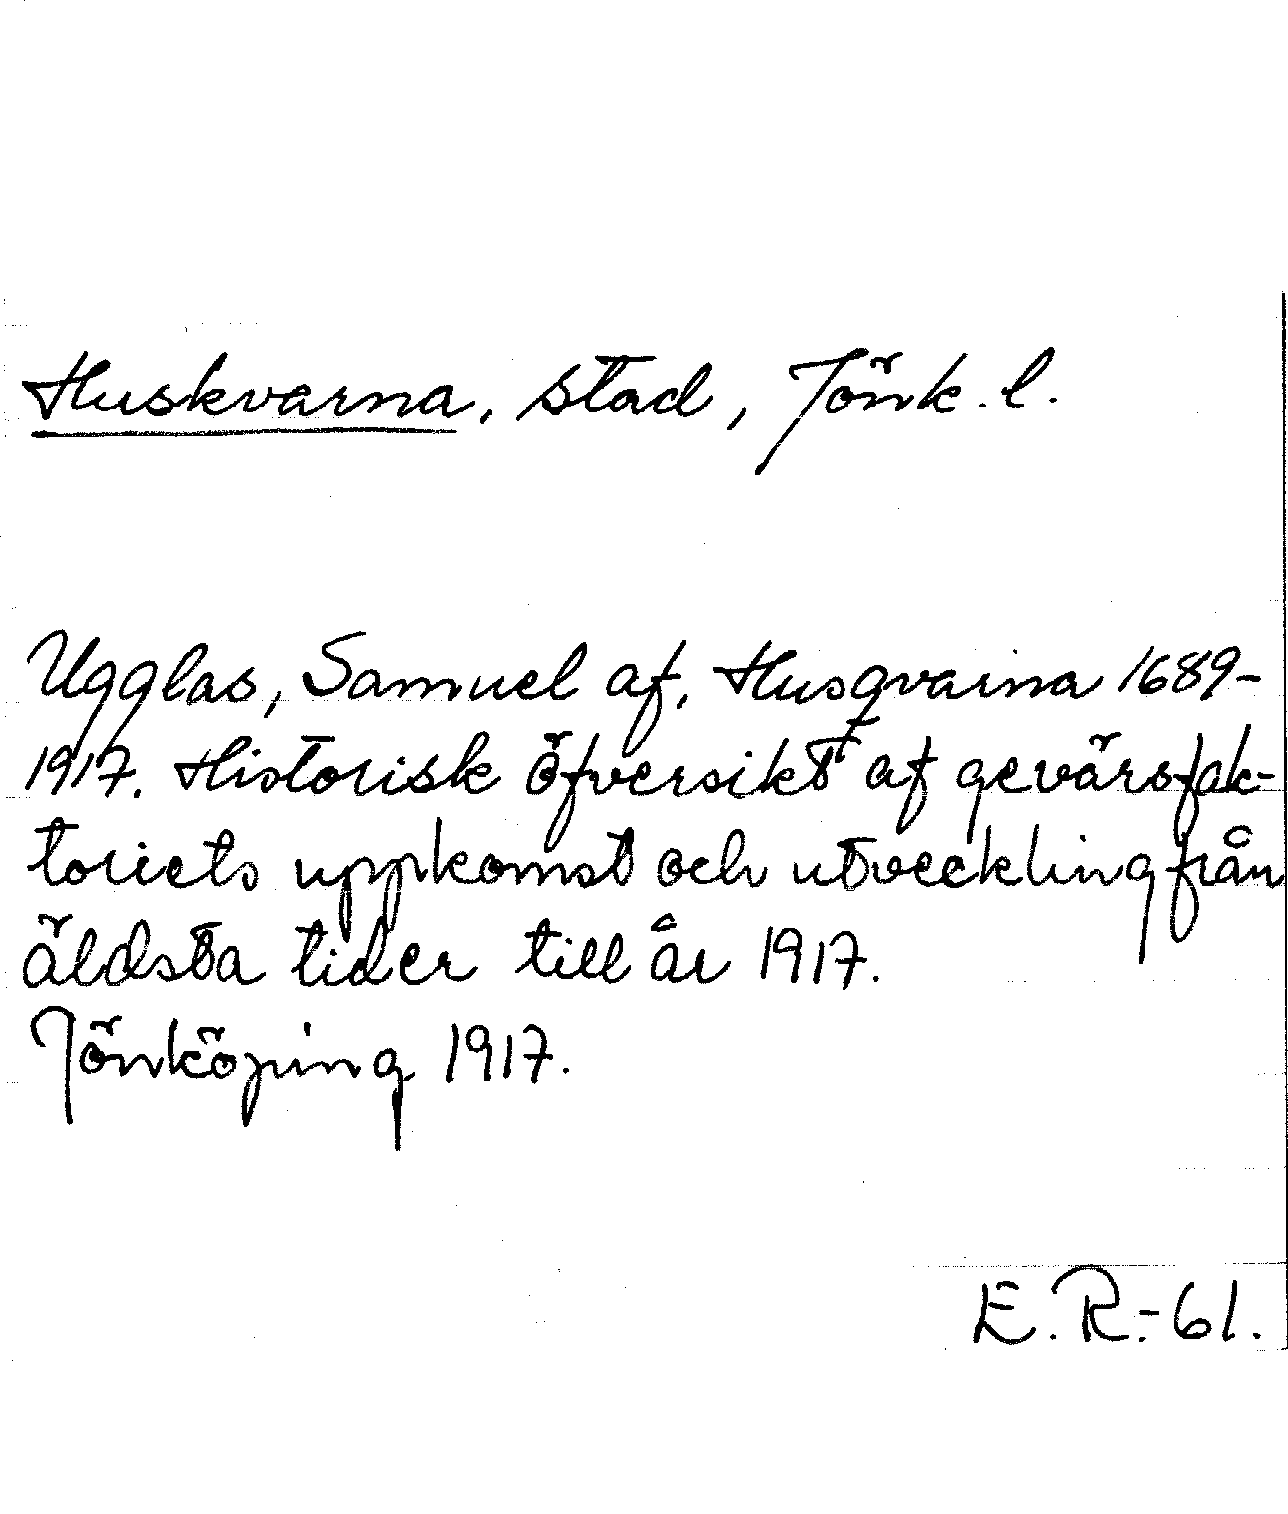 Huskvarna, stad, Jönk. l.
Ugglas, Samuel af, Husqvarna 1689-
1917. Historisk öfversikt af gevärsfak-
toriets uppkomst och utveckling från
äldsta tider till år 1917.
Jönköping 1917.
E. R.-61.